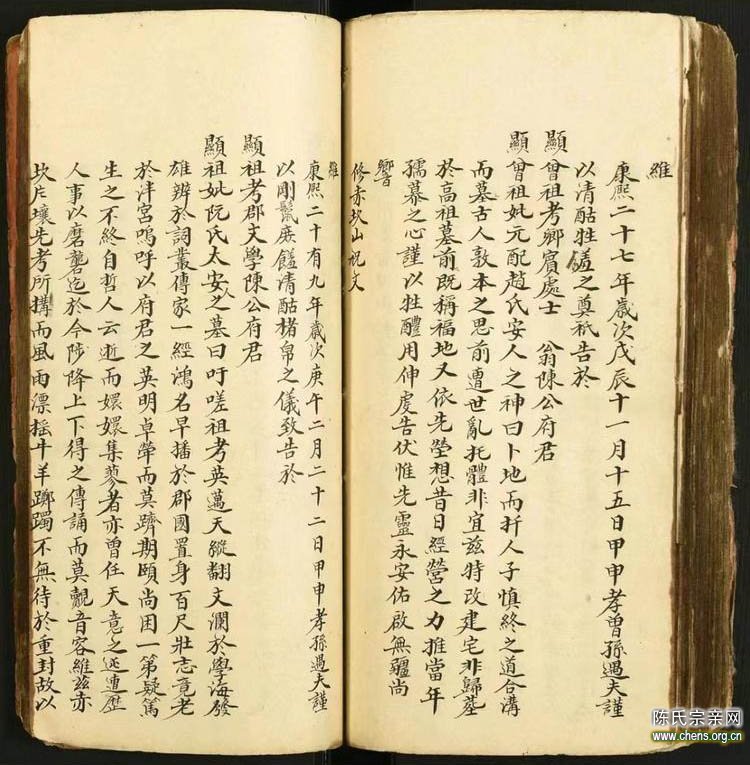 維
康熙二十七年歲次戊辰十一月十五日甲申孝曾孫遇夫謹
以清酤牲饈之奠祇告於
顯曾祖考鄉賓處士 翁陳公府君
顯曾祖妣元配趙氏安人之神曰卜地而扦人子慎終之道合溝
而墓古人敦本之思前遭世亂托體非宜茲特改建宅非歸葬
於高祖墓前既稱福地又依先塋想昔日經營之力推當年
孺慕之心謹以牲醴用伸虔告伏惟先靈永安佑啟無疆尚
響
修赤坎山祝文
維
康熙二十有九年歲次庚午二月二十二日甲申孝孫遇夫謹
以剛鬣庶饈清酤楮帛之儀致告於
顯祖考郡文學陳公府君
顯祖妣阮氏太安人之墓曰吁嗟祖考英邁天縱翻文瀾於學海發
雄辨於詞叢傳家一經鴻名早播於郡國置身百尺壯志竟老
於泮宮嗚呼以府君之英明卓犖而莫躋期頤尚困一第疑篤
生之不終自哲人云逝而嬛嬛集蓼者亦曾任天意之迍邅歷
人事以磨礱迄於今陟降上下得之傳誦而莫覩音容維茲赤
坎片壤先考所搆而風雨漂搖牛羊躑躅不無待於重封故以
陈氏宗亲网
www.chens.org.cn